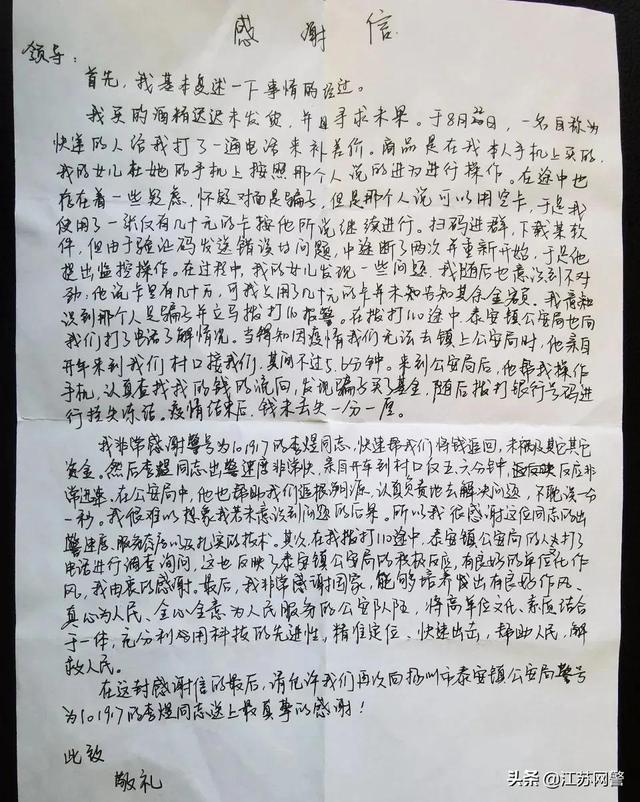 感谢信
领导：
首先，我基本复述一下事情的经过。
我买的酒精迟迟未发货，并且寻求未果。于8月20日，一名自称为
快递的人给我打了一通电话来补差价。商品是在我本人手机上买的，
我的女儿在她的手机上按照那个人说的进行操作。在途中也
存在着一些疑虑，怀疑对面是骗子，但是那个人说可以用空卡，于是我
使用了一张仅有几十元的卡按他所说继续进行。扫码进群，下载某软
件，但由于验证码发送错误的问题，中途断了两次并重新开始，于是他
提出监控操作。在过程中，我的女儿发现一些问题，我随后也意识到不对
劲，他说卡里有几十万，可我只用了几十元的卡并未告知其余金额，我意识
到那个人是骗子并立马拨打110报警。在拨打110途中，泰安镇公安局也向
我们打了电话了解情况。当得知因疫情我们无法去镇上公安局时，他亲自
开车来到我们村口接我们，其间不过5、6分钟。来到公安局后，他帮我操作
手机，认真查找我的钱的流向，发现骗子买了基金，随后拨打银行号码进
行挂失冻结。疫情结束后，我未丢失一分一厘。
我非常感谢警号为101917的李煜同志，快速帮我们将钱追回，未触及其它
资金。然后李煜同志出警速度非常快，亲自开车到村口仅五、六分钟，反应非
常迅速。在公安局中，他也帮助我们追根溯源，认真负责地去解决问题，不耽误一分
一秒。我很难以想象我若未意识到问题的后果。所以我很感谢这位同志的出
警速度、服务态度以及扎实的技术。其次，在我拨打110途中，泰安镇公安局的人打了
电话进行调查询问，这也反映了泰安镇公安局的积极反应，有良好的单位文化作
风，我由衷的感谢。最后，我非常感谢国家，能够培养出有良好作风、
真心为人民、全心全意为人民服务的公安队伍，将高单位文化、素质结合
于一体，充分利用科技的先进性，精准定位、快速出击，帮助人民，解
救人民。
在这封感谢信的最后，请允许我们再次向扬州市泰安镇公安局警号
为101917的李煜同志送上最真挚的感谢！
此致
敬礼
头条@江苏网警